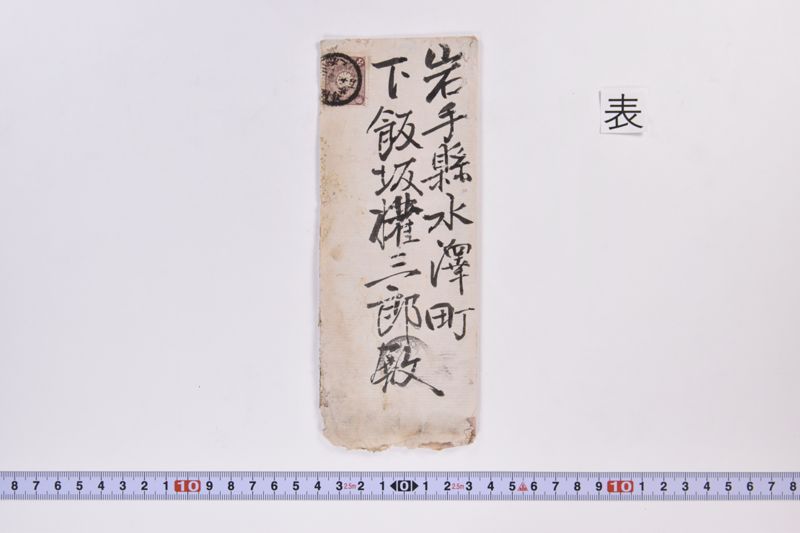 岩手縣水澤町
下飯坂權三郎殿
表
8 7 6 5 4 3 2 1 10 9 8 7 6 5 4 3 2.5m 2 1 0 1 2 2.5m 3 4 5 6 7 8 9 10 1 2 3 4 5 6 7 8